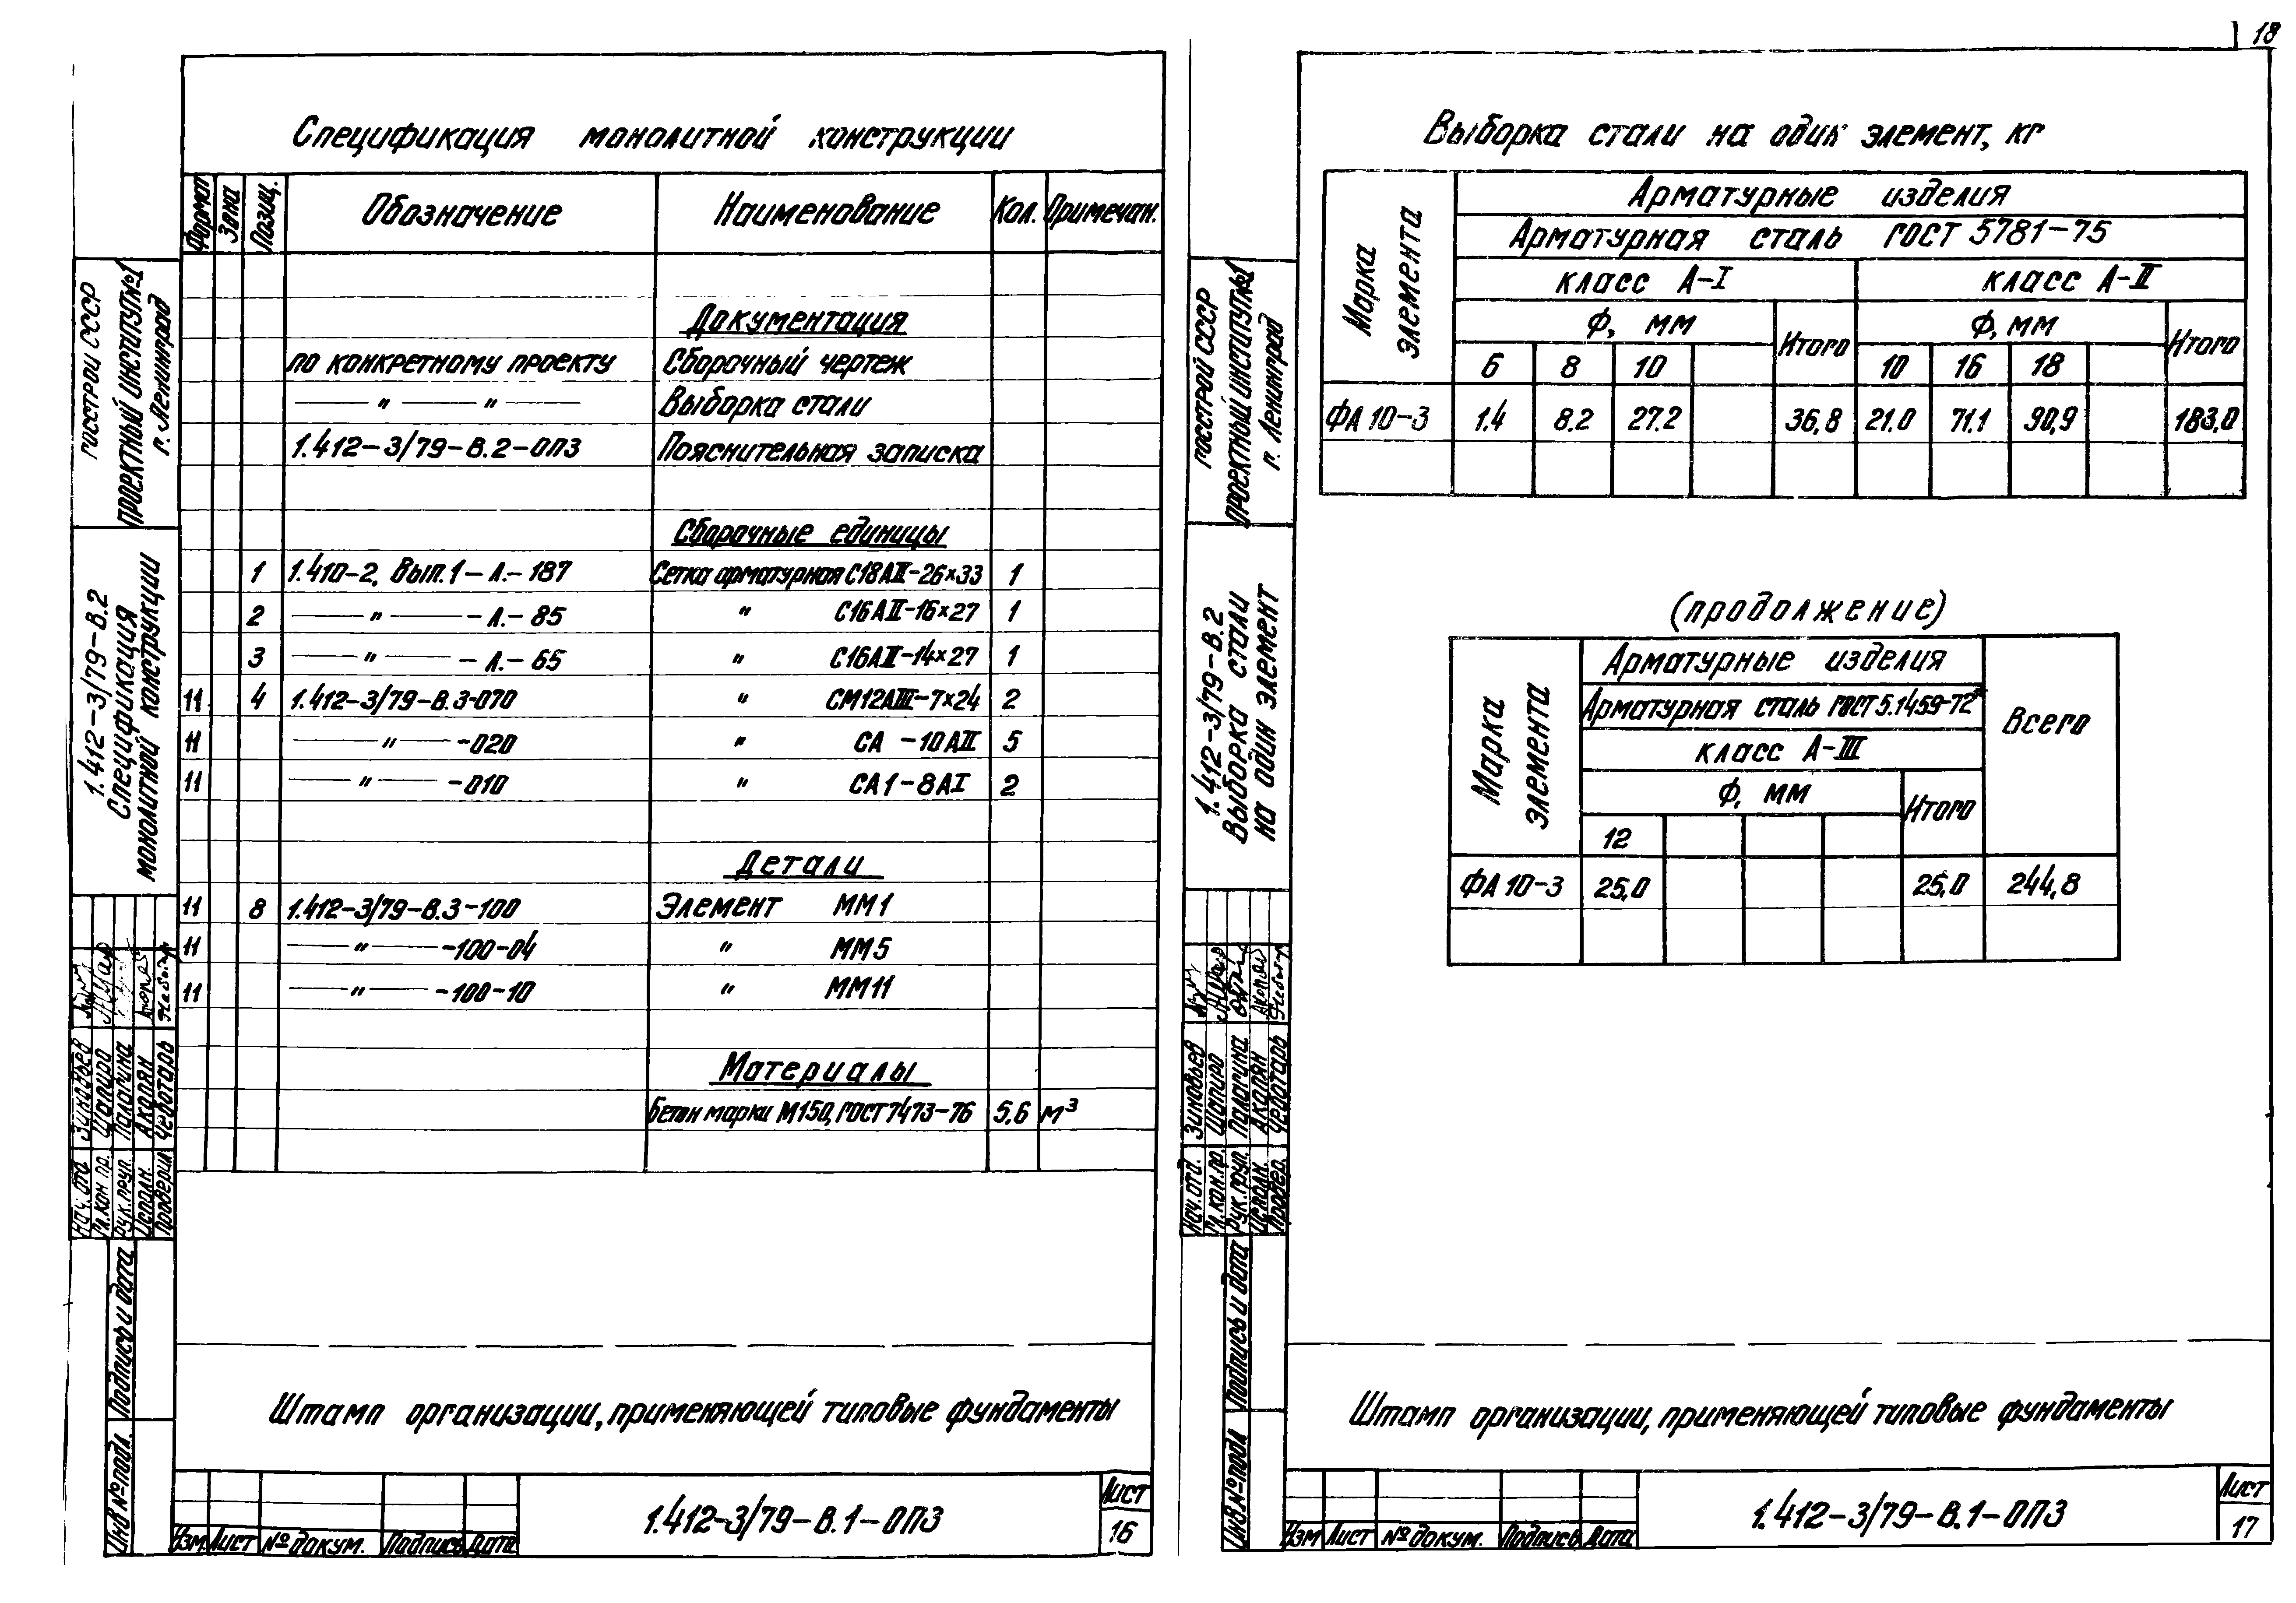 18
Спецификация монолитной конструкции
Формат Зона Позиц. Обозначение Наименование Кол. Примечан.
Документация
по конкретному проекту Сборочный чертеж
— " — " — Выборка стали
1.412-3/79-В.2-ОПЗ Пояснительная записка
Сборочные единицы
1 1.410-2, Вып.1-Л.-187 Сетка арматурная С18АII-26×33 1
2 — " — -Л.-85 " С16АII-16×27 1
3 — " — -Л.-65 " С16АII-14×27 1
11 4 1.412-3/79-В.3-070 " СМ12АIII-7×24 2
11 — " — -020 " СА -10АII 5
11 — " — -010 " СА1-8АI 2
Детали
11 8 1.412-3/79-В.3-100 Элемент ММ1
11 — " — -100-04 " ММ5
11 — " — -100-10 " ММ11
Материалы
Бетон марки М150, ГОСТ 7473-76 5,6 м³
Штамп организации, применяющей типовые фундаменты
Изм. Лист № докум. Подпись Дата
1.412-3/79-В.1-ОПЗ
Лист
16
Госстрой СССР
Проектный институт №1
г. Ленинград
1.412-3/79-В.2
Спецификация
монолитной конструкции
Нач. отд. Зиновьев
Гл. кон. пр. Шапиро
Рук. груп. Палагина
Исполн. Акопян
Проверил Чеботарь
Подпись и дата
Инв № подл.
Выборка стали на один элемент, кг
Марка элемента
Арматурные изделия
Арматурная сталь ГОСТ 5781-75
класс А-I класс А-II
Ф, мм Итого Ф, мм Итого
6 8 10 10 16 18
ФА 10-3 1.4 8.2 27.2 36,8 21.0 71.1 90,9 183,0
(продолжение)
Марка элемента
Арматурные изделия
Арматурная сталь ГОСТ 5.1459-72*
Всего
класс А-III
Ф, мм Итого
12
ФА 10-3 25,0 25,0 244,8
Штамп организации, применяющей типовые фундаменты
Изм Лист № докум. Подпись Дата
1.412-3/79-В.1-ОПЗ
Лист
17
Госстрой СССР
Проектный институт №1
г. Ленинград
1.412-3/79-В.2
Выборка стали
на один элемент
Нач. отд. Зиновьев
Гл. кон. пр. Шапиро
Рук. груп. Палагина
Исполн. Акопян
Провер. Чеботарь
Подпись и дата
Инв № подл